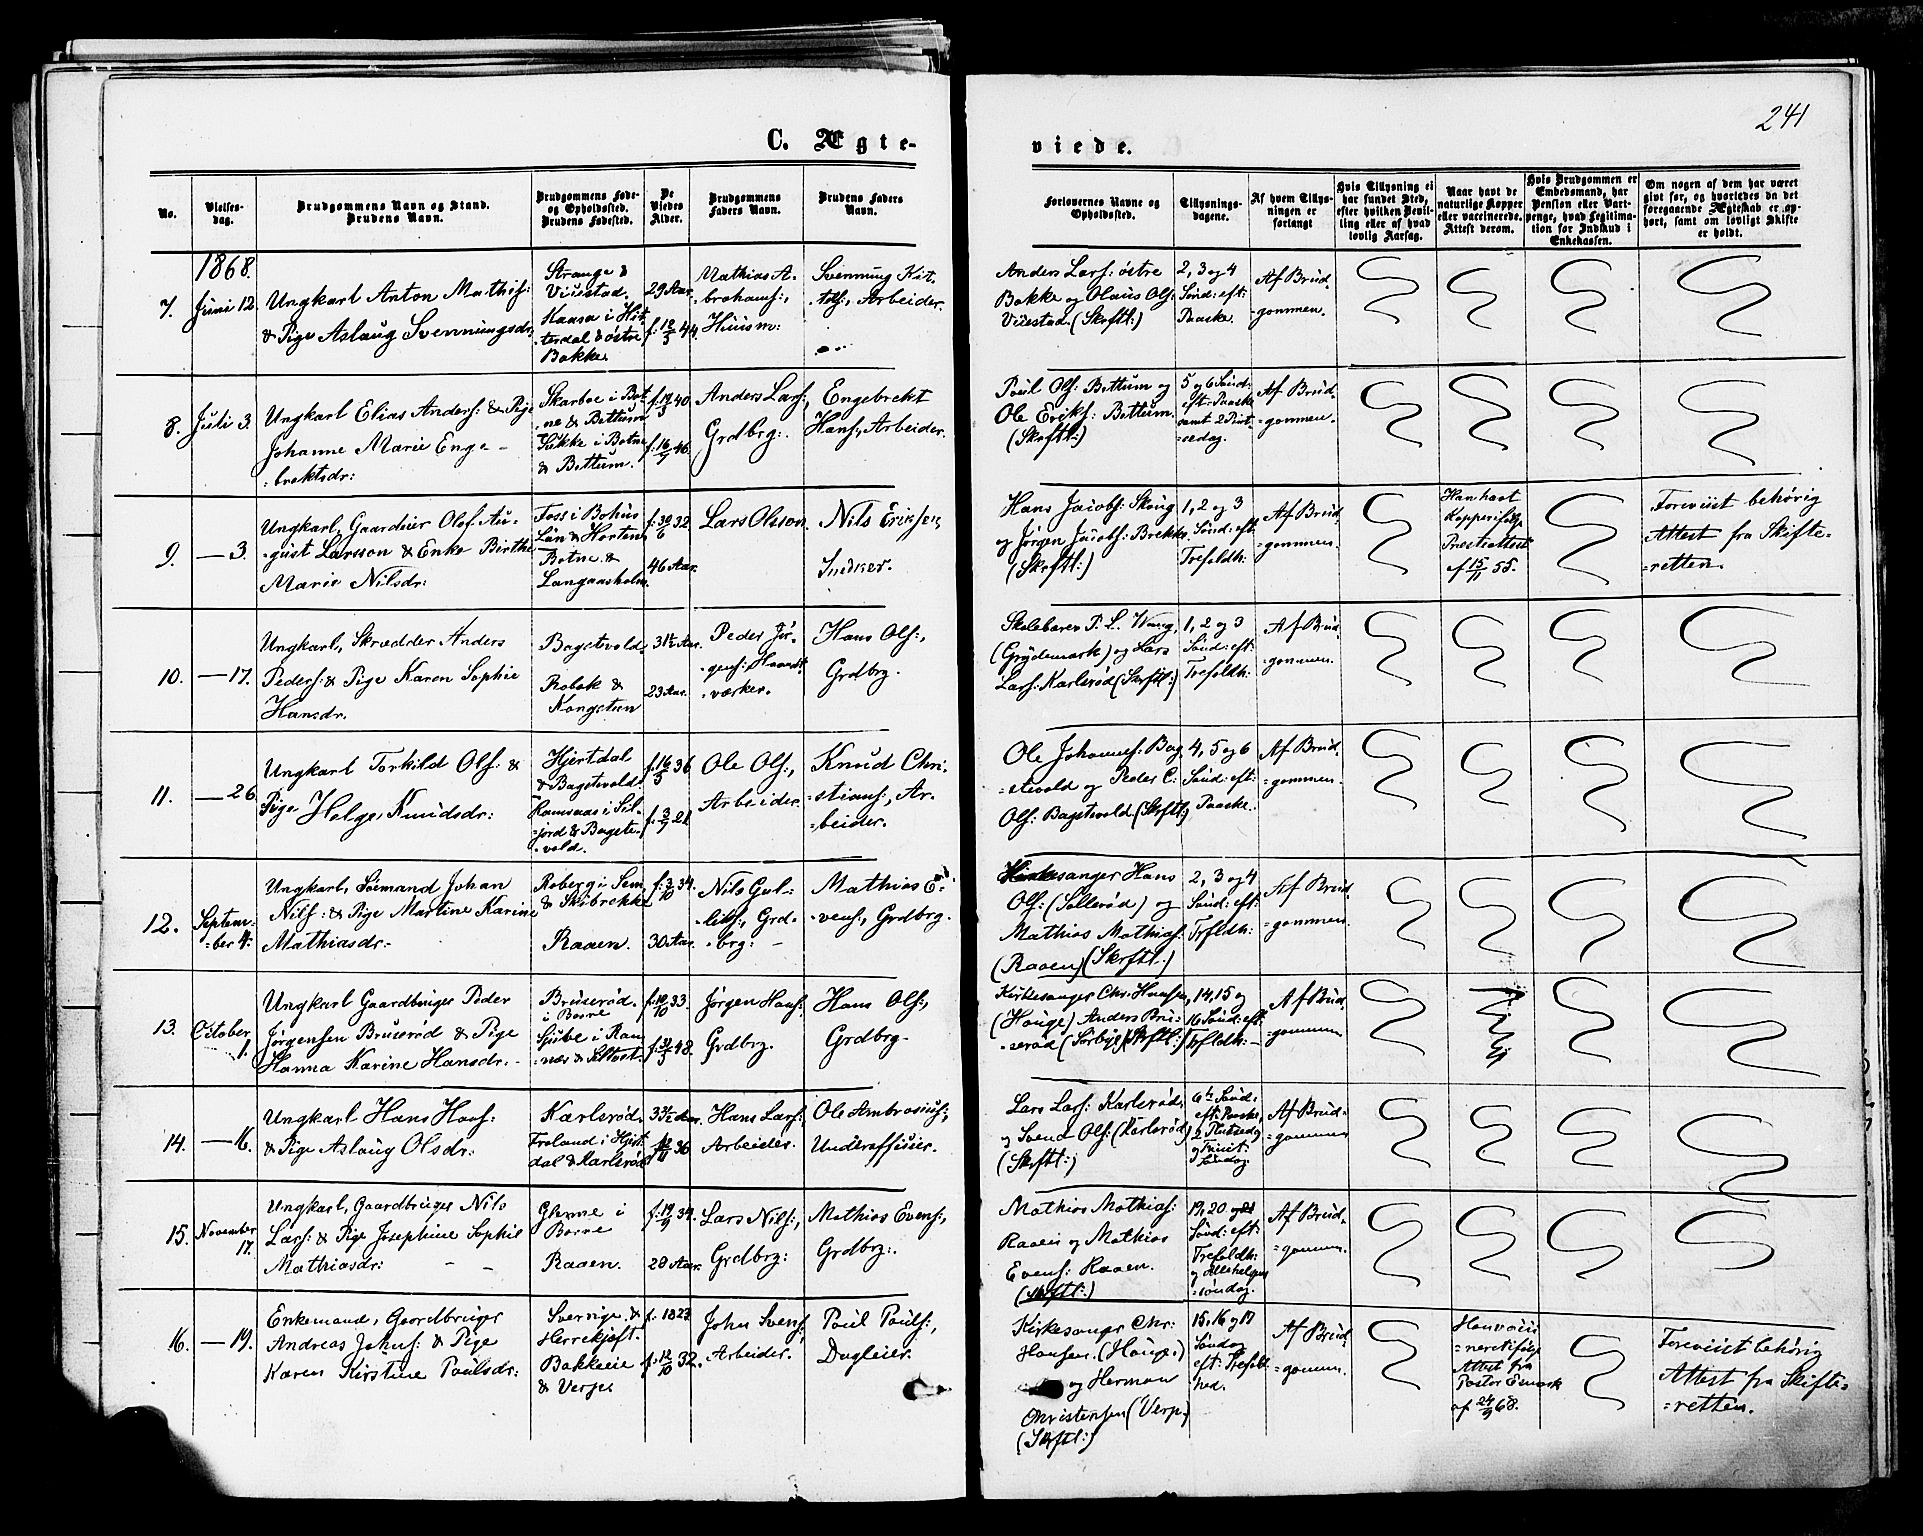 241
C. Ægte-
viede.
No.
Vielses-
dag.
Brudgommens Navn og Stand.
Brudens Navn.
Brudgommens Føde-
og Opholdssted.
Brudens Fødested.
De
Viedes
Alder.
Brudgommens
Faders Navn.
Brudens Faders
Navn.
Forlovernes Navne og
Opholdssted.
Tillysnings-
dagene.
Af hvem Tillys-
ningen er
forlangt
Hvis Tillysning ei
har fundet Sted,
efter hvilken Bevil-
ling eller af hvad
lovlig Aarsag.
Naar havt de
naturlige Kopper
eller vaccinerede.
Attest derom.
Hvis Brudgommen er
Embedsmand, har
Pension eller Vart-
penge, hvad Legitima-
tion for Indskud i
Enkekassen.
Om nogen af dem har været
gift før, og hvorledes da det
foregaaende Ægteskab er op-
hørt, samt om lovligt Skifte
er holdt.
1868.
7.
Juni 12.
Ungkarl Anton Mathis:
& Pige Aslaug Svenningsdr:
Strange &
Viuestad.
Haasa i Hit-
terdal & østre
Bakke.
29 Aar.
f: 12/3 44.
Mathias A-
brahams:,
Huusm:
Svenning Kit-
tils:, Arbeider.
Anders Lars: østre
Bakke og Olaus Ols:
Viuestad. (Skrftl:)
2, 3 og 4
Sønd: eft:
Paaske.
Af Brud-
gommen.
8.
Juli 3.
Ungkarl Elias Anders: & Pige
Johanne Marie Enge-
=brektsdr:
Skarboe i Bot-
ne & Bettum
Søkke i Botne
& Bettum.
f: 17/3 40.
f: 16/9 46.
Anders Lars:,
Grdbrg:
Engebrekt
Hans:, Arbeider.
Poul Ols: Bettum og
Ole Eriks: Bettum.
(Skrftl:)
5 og 6 Sønd:
eft: Paaske
samt 2 Pint-
sedag.
Af Brud-
=gommen.
9.
— 3.
Ungkarl, Gaardeier Olof Au-
gust Larsson & Enke Birthe
Marie Nilsdr:
Foss i Bohus
Län & Horten
Botne &
Langaasholm.
f: 30/6 32.
46 Aar.
Lars Olsson.
Nils Eriksen,
Inderst.
Hans Jacobs: Skoug
og Jørgen Jacobs: Brekke.
(Skrftl:)
1, 2 og 3
Sønd: eft:
Trefoldh:
Af Brud-
gommen.
Han havt
Kopper ifølge
Præsteattest
af 15/11 55.
Foreviist behørig
Attest fra Skifte-
=retten.
10.
— 17.
Ungkarl, Skrædder Anders
Peders: & Pige Karen Sophie
Hansdr.
Bagstvold.
Robak &
Kongsteen
31½ Aar.
23 Aar.
Peder Jør-
gens: Haand-
værker.
Hans Ols:,
Grdbrg.
Skolelærer P. L. Wang,
(Grydemark) og Lars
Lars: Karlsrød (Skrftl:)
1, 2 og 3
Sønd: eft:
Trefoldh:
Af Brud-
gommen.
11.
— 26.
Ungkarl Torkild Ols: &
Pige Helge Knudsdr:
Hjertdal
& Bagstvold.
Ramsaas i Sil-
jord & Bagste-
vold.
f: 16/5 36
f: 3/9 21
Ole Ols:,
Arbeider.
Knud Chri-
=stians:, Ar-
=beider.
Ole Johannes: Bag-
stevold og Peder C:
Ols: Bagstvold (Skrftl:)
4, 5 og 6
Sønd: eft:
Paaske.
Af Brud-
=gommen.
12.
Septem-
=ber 4.
Ungkarl, Sømand Johan
Nils: & Pige Martine Karine
Mathiasdr:
Roberg i Sem
& Skibrekke
Raaen.
f: 3/10 34.
30 Aar.
Nils Gul-
leks:, Grd-
=brg:
Mathias E-
vens:, Grdbrg.
Kirkesanger Hans
Ols: (Sollerød) og
Mathias Mathias:
(Raaen) (Skrftl:)
2, 3 og 4
Sønd: eft:
Trfldh:
Af Brud-
=gommen.
13.
October
1.
Ungkarl Gaardbruger Peder
Jørgensen Bruserød & Pige
Hanna Karine Hansdr.
Bruserød.
i Borre
f: 10/10 33.
f: 31/3 48.
Jørgen Hans:
Grdbrg.
Hans Ols:,
Grdbrg.
Kirkesanger Chr. Hansen,
(Houge) Anders Bru-
serød (Sørbye) (Skrftl:)
14, 15 og
16 Sønd: eft:
Trfoldh:
Af Brud-
=gommen
14.
— 16.
Ungkarl Hans Hans:
& Pige Aslaug Olsdr:
Karlsrød.
Froland i Hjert-
dal & Karlsrød
33½ Aar.
f: 12/11 36
Hans Lars:
Arbeider.
Ole Ambrosius:,
Underofficier.
Lars Lars: Karlsrød
og Svend Ols: (Karlsrød)
(Skrftl:)
6te Sønd:
eft: Paaske
2 Pintsedag
og Trinit:
Søndag.
Af Brud-
=gommen
15.
November
17.
Ungkarl, Gaardbruger Nils
Lars: & Pige Josephine Sophie
Mathiasdr:
Glenne i
Borre
Raaen.
f: 19/9 34.
28 Aar.
Lars Nils:,
Grdbrg:
Mathias Evens:,
Grdbrg:
Mathias Mathias:
Raaen og Mathias
Evens: Raaen.
(Skrftl:)
19, 20 og 21
Sønd: eft:
Trefoldh:
og Allehelgen
=søndag.
Af Brud-
=gommen.
16.
— 19.
Enkemand, Gaardbruger
Andreas Johns: & Pige
Karen Kirstine Poulsdr:
Sverrige &
Herrekjøft.
Bakkeeie
& Verpe
f. 1823.
f. 12/10 32.
John Svens:
Arbeider.
Poul Pouls:,
Dagleier.
Kirkesanger Chr:
Hansen. (Houge.)
og Herman
Christensen (Verpe)
(Skrftl:)
15, 16 og 17
Søndag
eft: Trefold-
hed.
Af Brud-
=gommen.
Attest fra
af 24/9 68.
Foreviist behørig
Attest fra Skifte-
=retten.